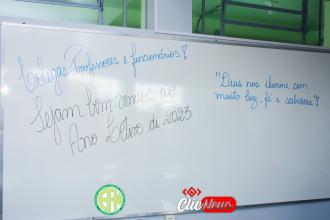 Colegas Professores e funcionários!
Sejam bem-vindos ao
Ano Letivo de 2023
"Deus nos ilumine com
muita luz, fé e sabedoria"!
ClicNews